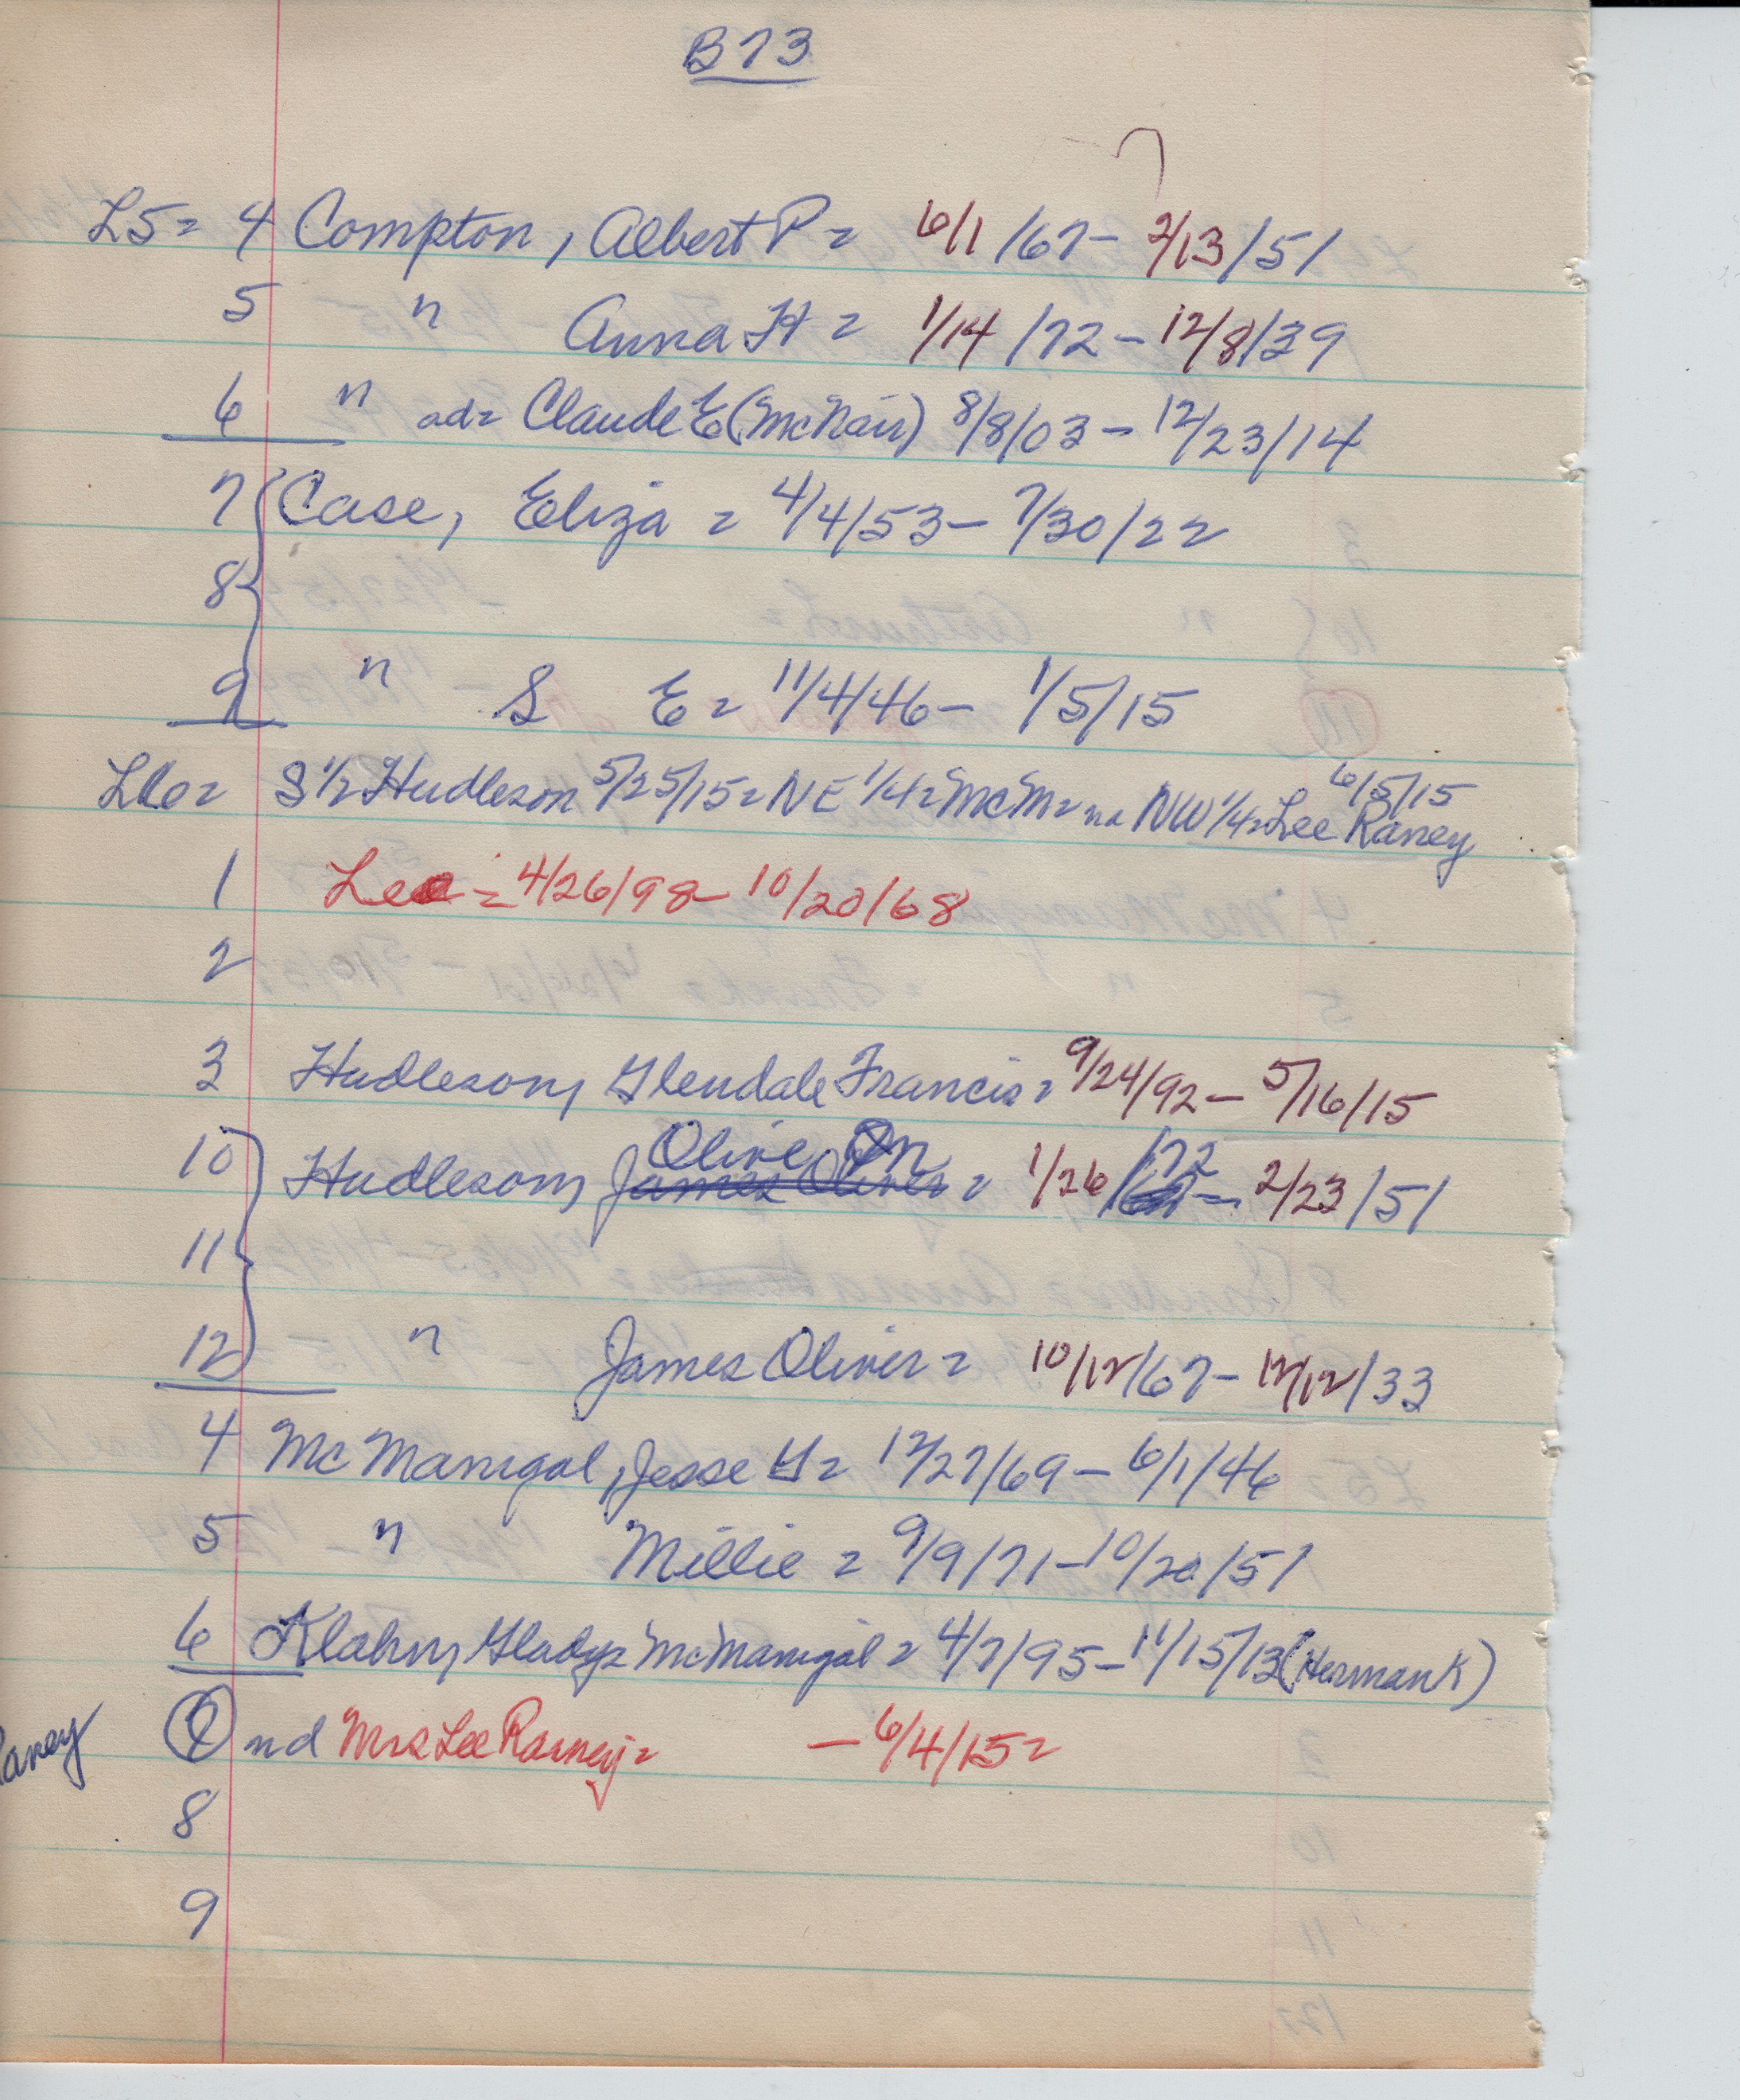 B73
L5= 4 Compton, Albert P= 6/1/67- 2/13/51
5 " Anna H= 1/14/72- 12/8/39
6 " ad= Claude E (McNair) 8/8/03- 12/23/14
7 Case, Eliza = 4/4/53- 7/30/22
8
9 " S E= 11/4/46- 1/5/15
L6= S 1/2 Hudleson 5/25/15= NE 1/4= McM= NW 1/4= Lee Raney 6/5/15
1 Lee = 4/26/98- 10/20/68
2
3 Hudleson, Glendale Francis= 9/24/92- 5/16/15
10 Hudleson, James Oliver Olive = 1/26/72- 2/23/51
11
12 " James Oliver= 10/12/67- 12/12/33
4 McManigal, Jesse G= 12/27/69- 6/1/46
5 " Millie = 9/9/71- 10/20/51
6 Klahn, Gladys McManigal= 4/7/95- 11/15/13 (Herman K)
7 nd Mrs Lee Raney= - 6/4/15=
Raney
8
9